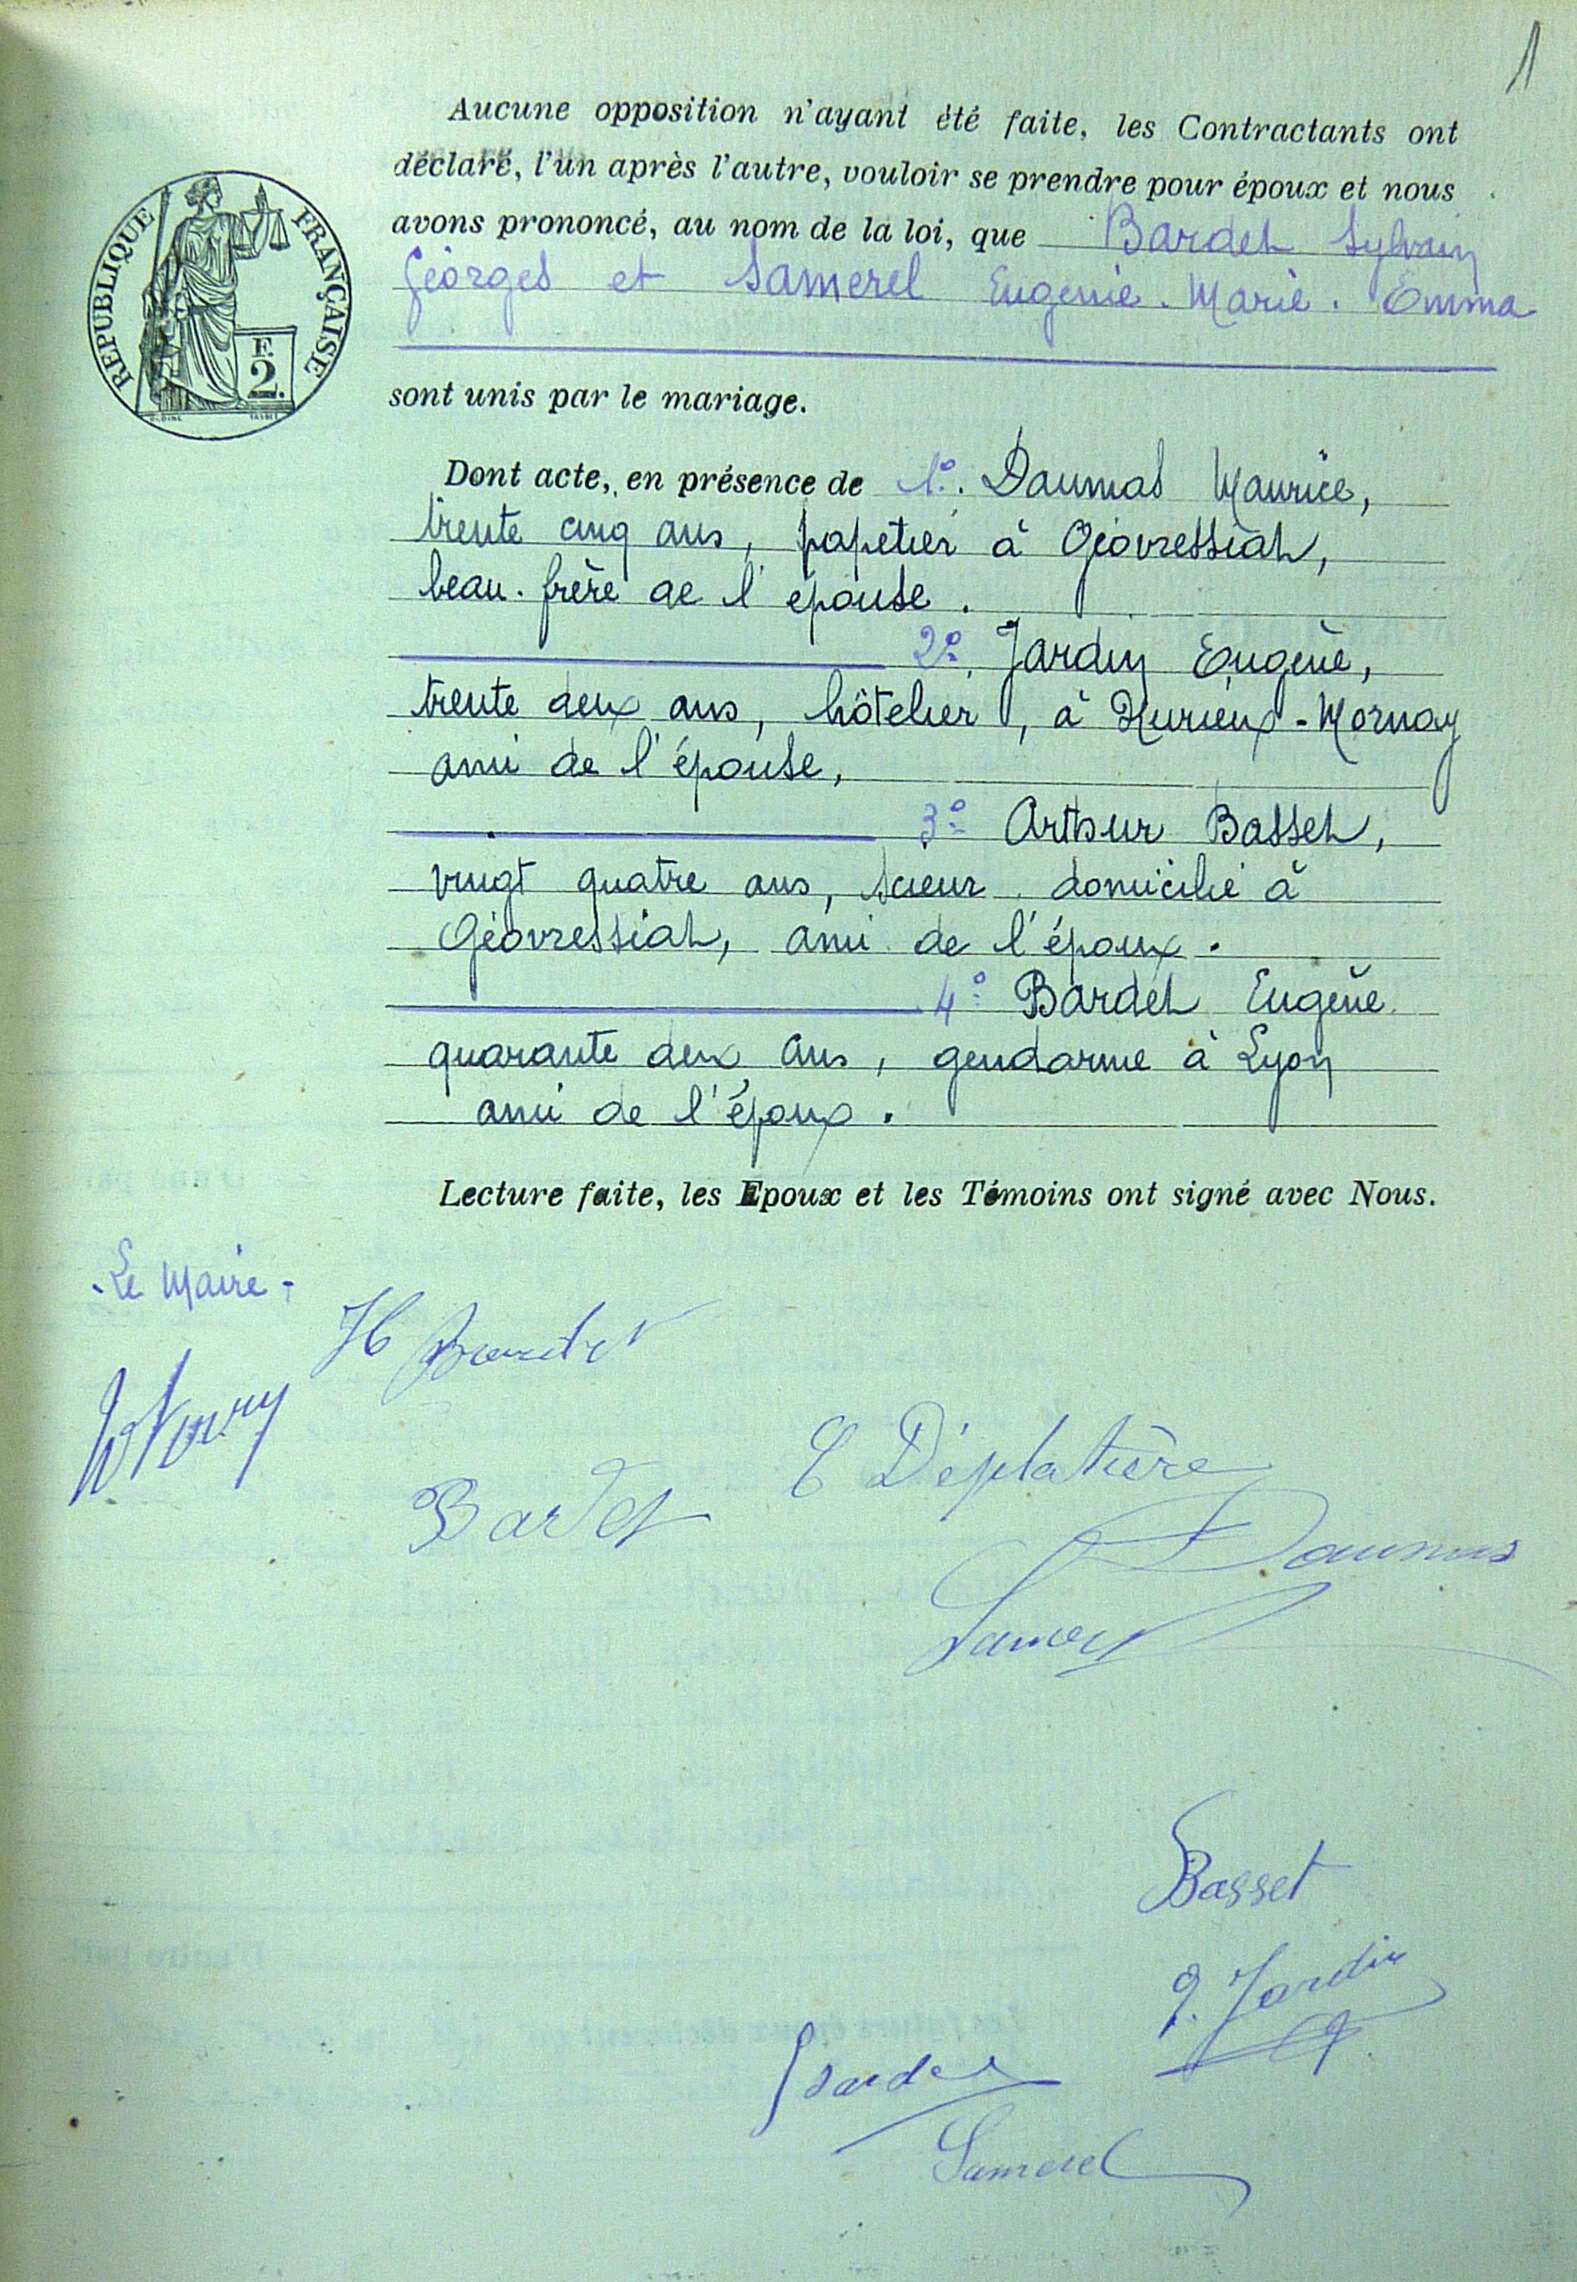 1
Aucune opposition n'ayant été faite, les Contractants ont
déclaré, l'un après l'autre, vouloir se prendre pour époux et nous
avons prononcé, au nom de la loi, que Bardet Sylvain
Georges et Samerel Eugénie. Marie. Emma
sont unis par le mariage.
REPUBLIQUE FRANÇAISE
F.
2.
Dont acte, en présence de 1º. Daumas Maurice,
trente cinq ans, papetier à Géovressiat,
beau-frère de l'épouse.
2º. Jardin Eugène,
trente deux ans, hôtelier, à Nurieux-Mornay
ami de l'épouse,
3º Arthur Basset,
vingt quatre ans, scieur domicilié à
Géovressiat, ami de l'époux.
4º Bardet Eugène
quarante deux ans, gendarme à Lyon
ami de l'époux.
Lecture faite, les Epoux et les Témoins ont signé avec Nous.
Le Maire
Bardet
E Déplatière
Daumas
Basset
Jardin
Samerel